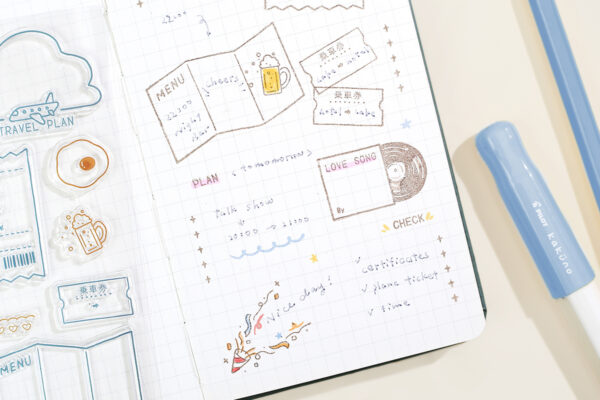 TRAVEL PLAN
乗車券
MENU
22:00
MENU
cheers
22:00
night
bar
乗車券
乗車券
hotel → lake
PLAN < tomorrow >
talk show
20:00 → 21:00
LOVE SONG
By
CHECK
✓ certificates
✓ plane ticket
✓ time
Nice day!
PILOT kakuno